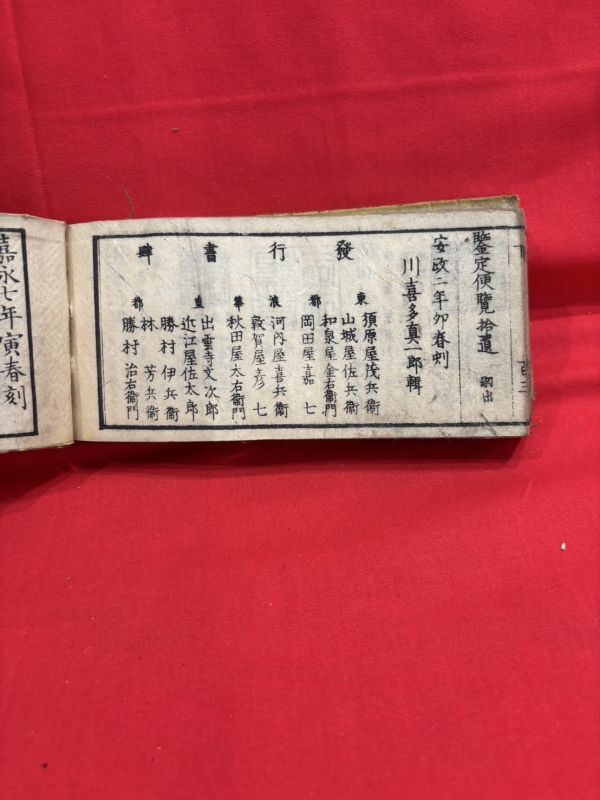 鑒定便覽拾遺 嗣出
安政二年卯春刻
川喜多真一郎輯
發行書肆
東都
須原屋茂兵衞
山城屋佐兵衞
和泉屋金右衞門
岡田屋嘉七
浪華
河内屋喜兵衞
敦賀屋彦七
秋田屋太右衞門
皇都
出雲寺文次郎
近江屋佐太郎
勝村伊兵衞
林芳兵衞
勝村治右衞門
嘉永七年寅春刻